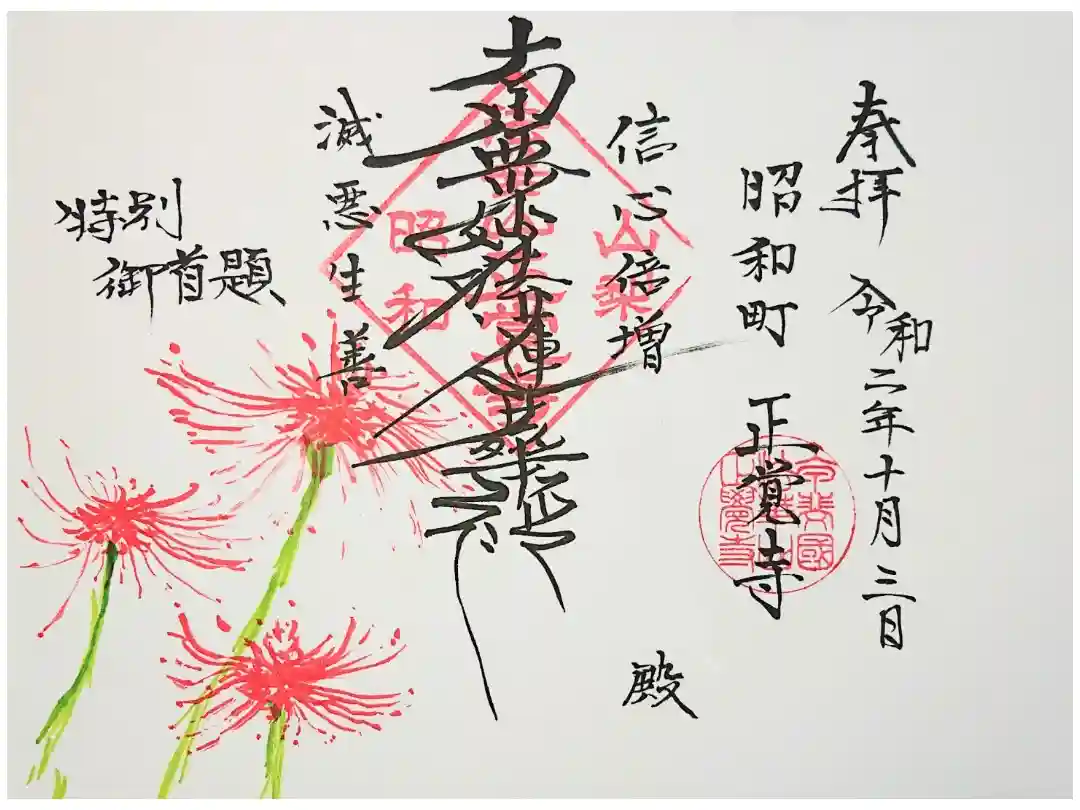 奉拝 令和二年十月三日
昭和町 正覚寺
信心倍増
殿
南無妙法蓮華経
滅悪生善
特別
御首題
山梨
昭和